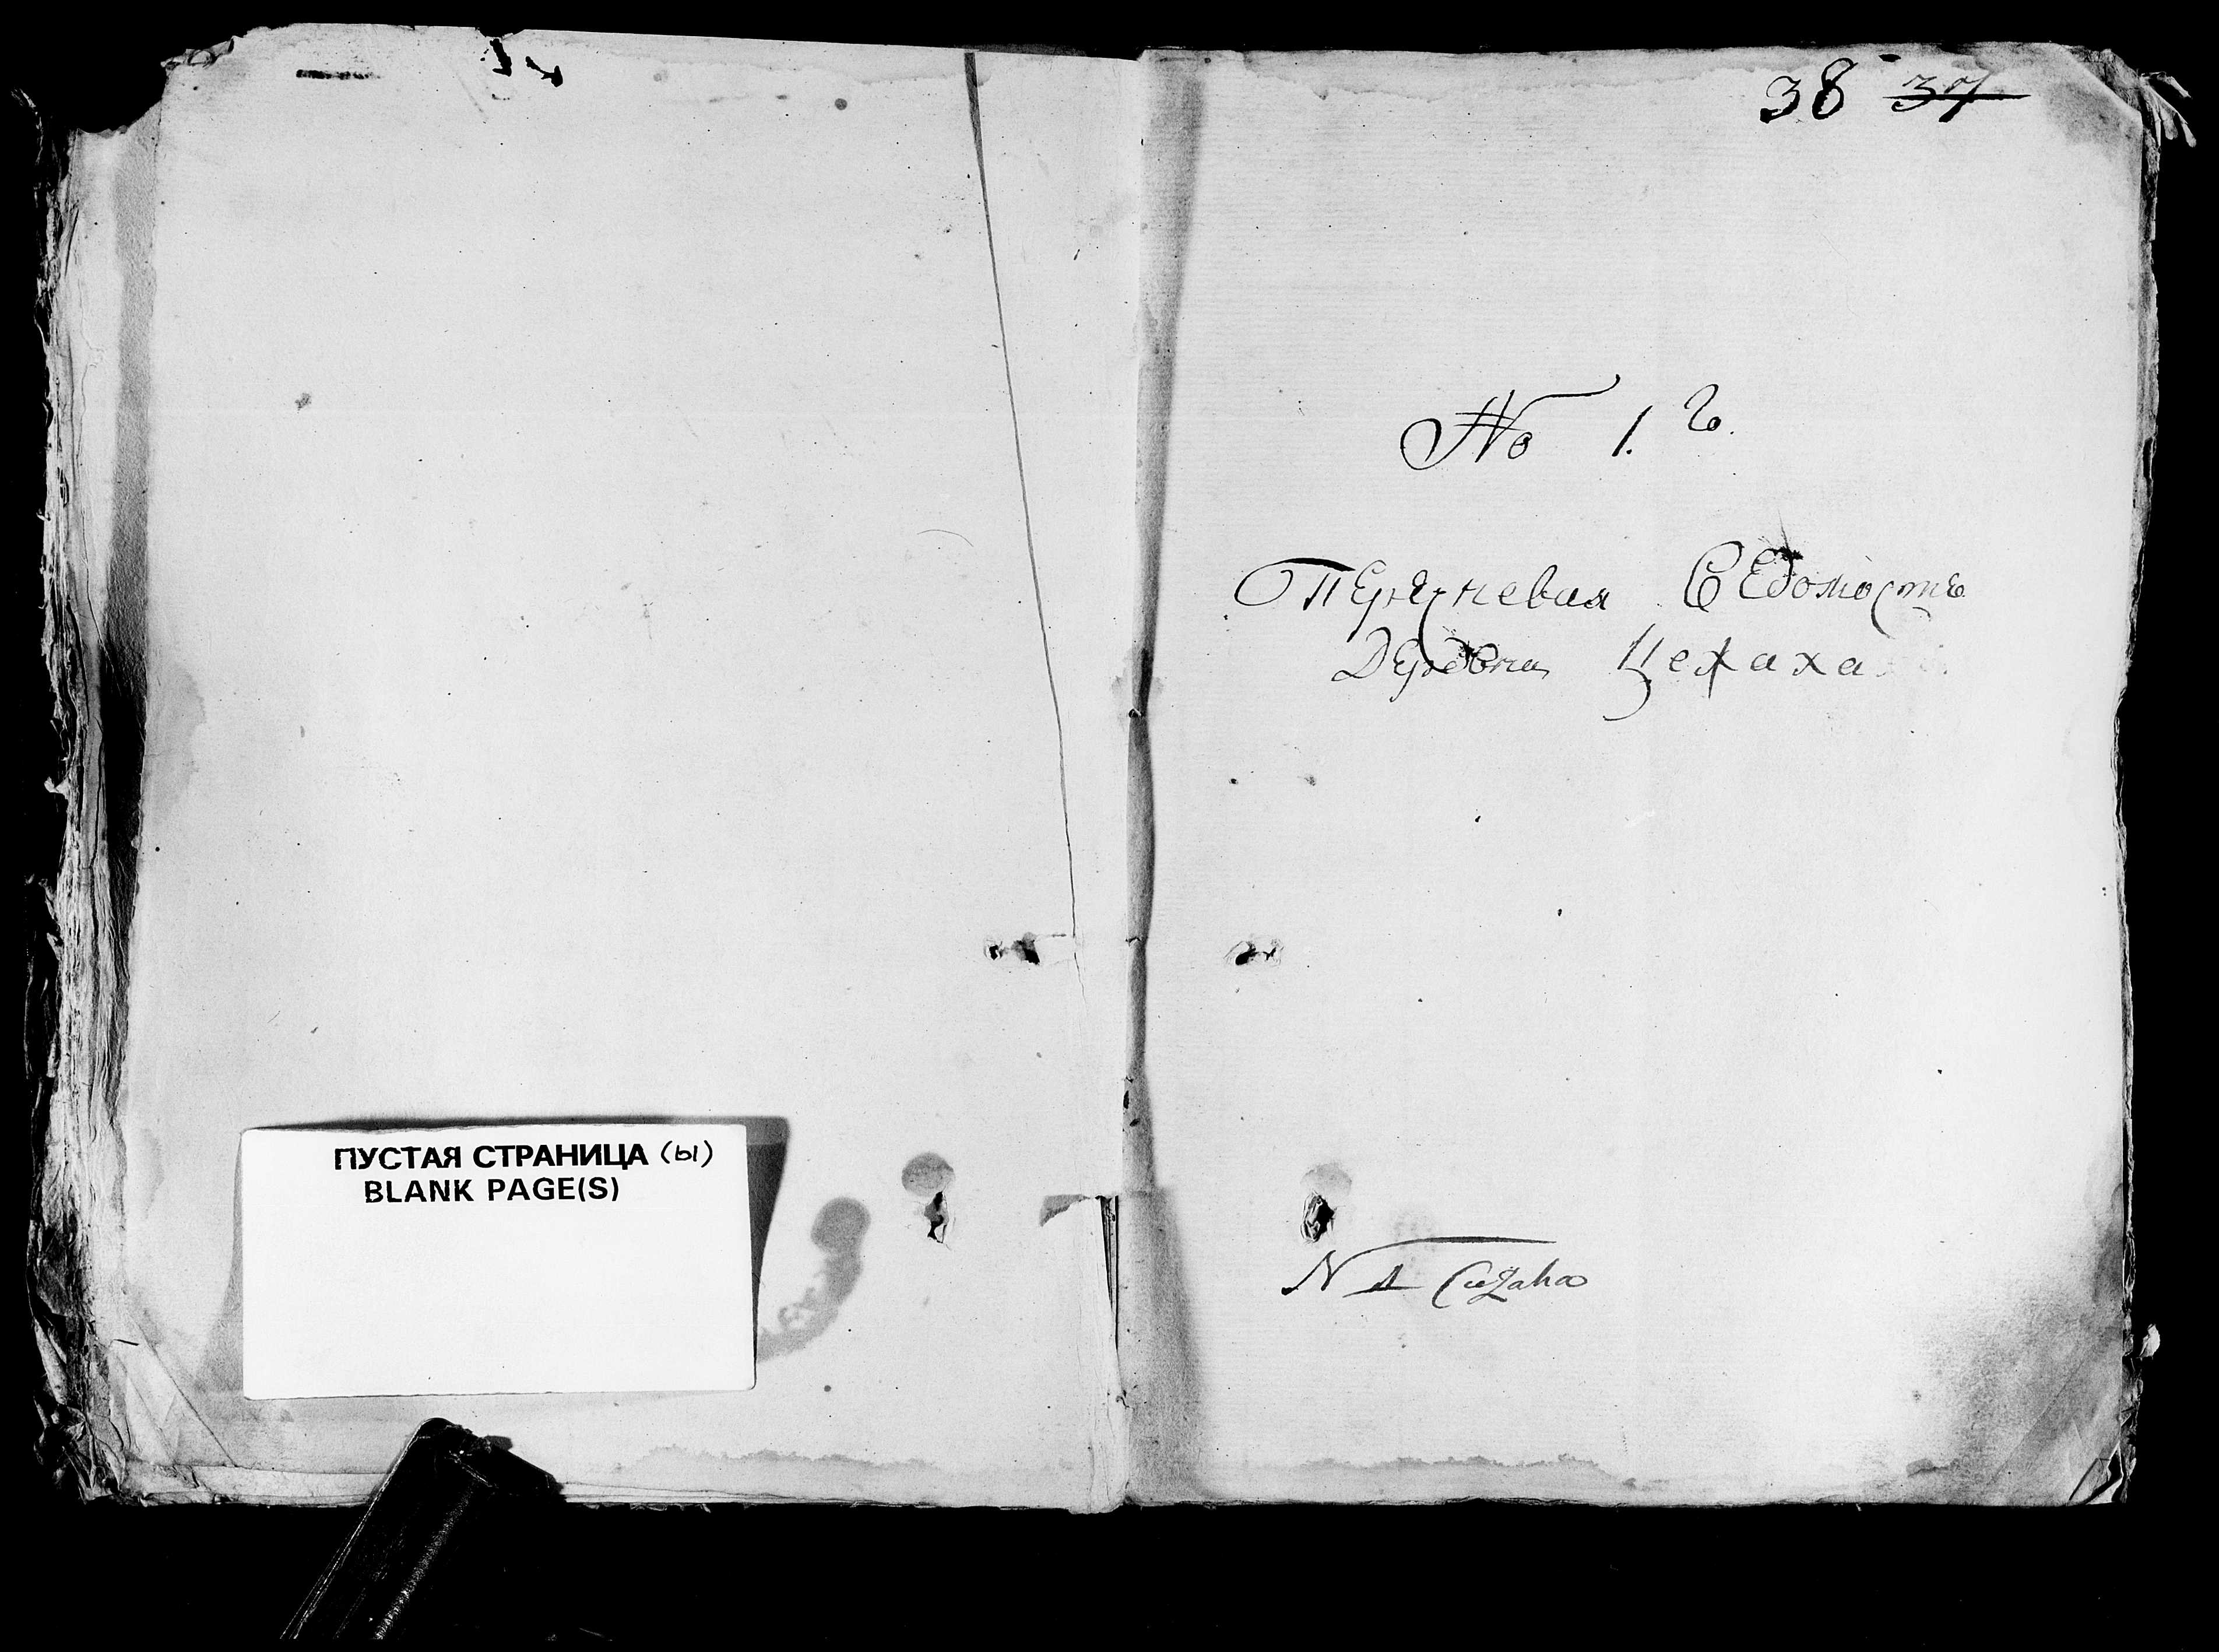 ПУСТАЯ СТРАНИЦА (ы)
BLANK PAGE(S)
38 37
No 1.й
Перечневая Ведомость
Деревни Цежаха
N 1